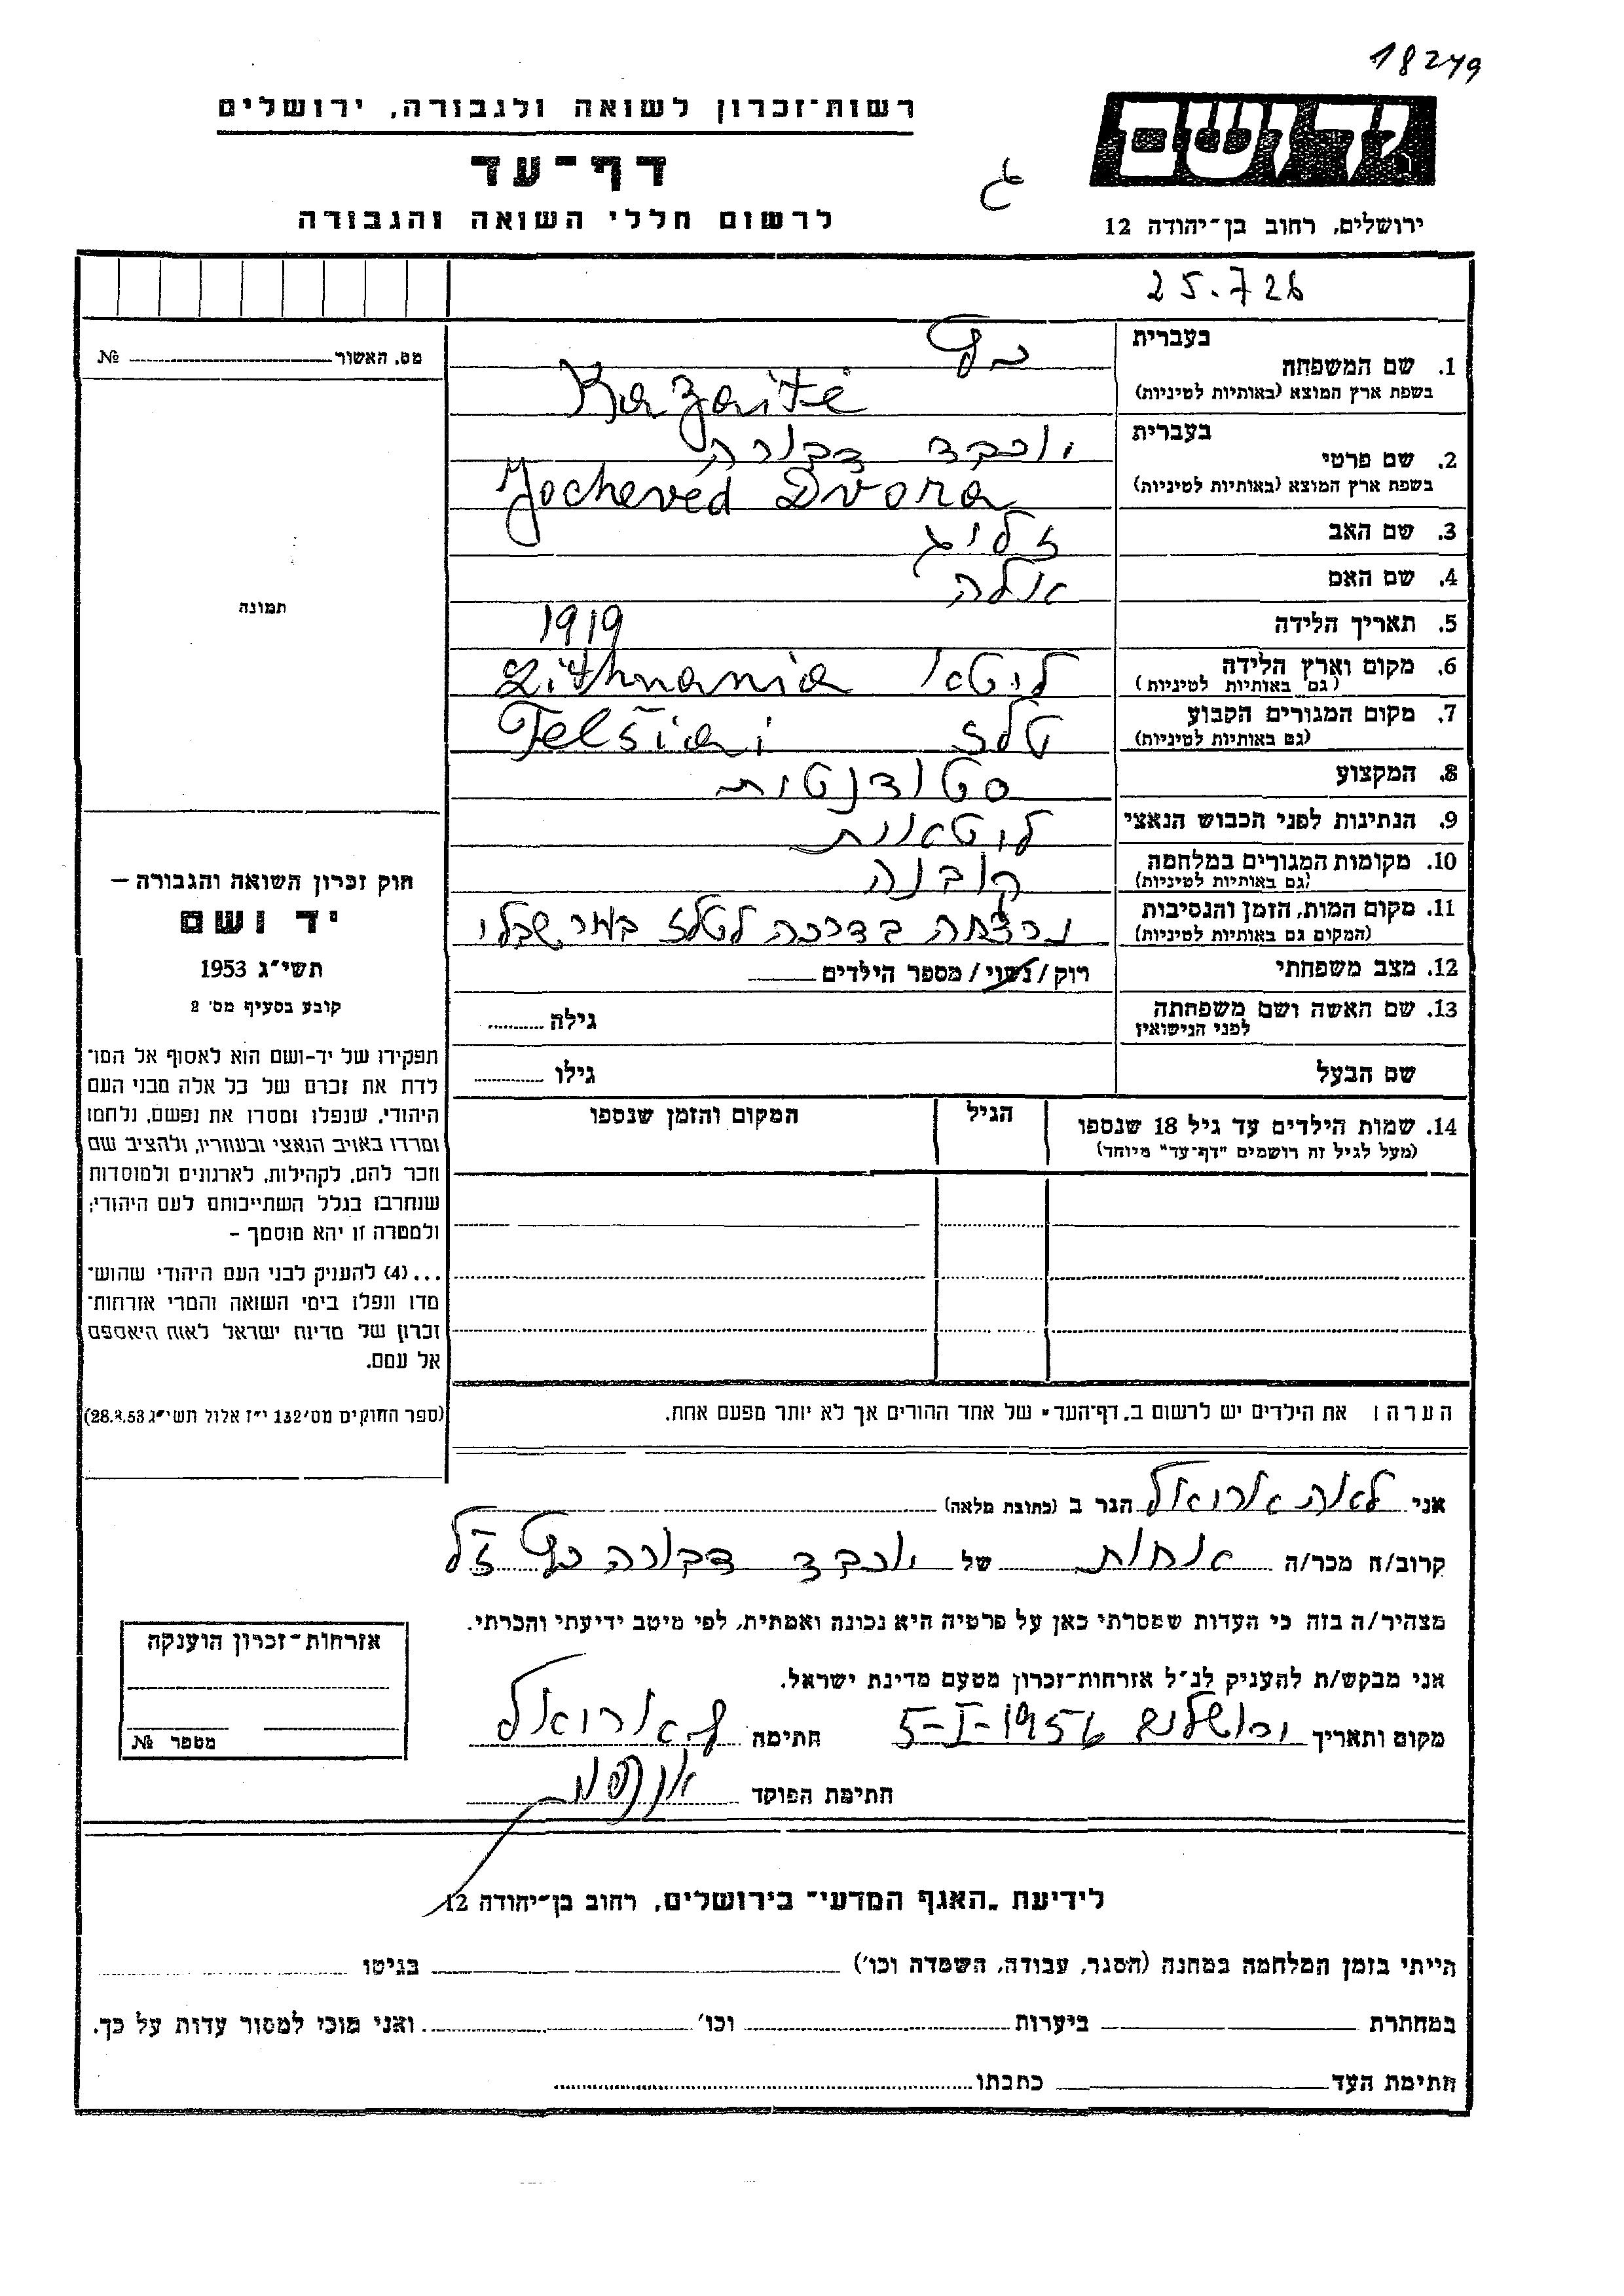 18249
רשות־זכרון לשואה ולגבורה, ירושלים
דף־עד
לרשום חללי השואה והגבורה
יד ושם
ירושלים, רחוב בן־יהודה 12
25.726
מס. האשור № 
בעברית
1. שם המשפחה
בשפת ארץ המוצא (באותיות לטיניות) Kazaité
בעברית יוכבד דבורה
2. שם פרטי
בשפת ארץ המוצא (באותיות לטיניות) Jocheved Dvora
3. שם האב זליג
4. שם האם אלה
5. תאריך הלידה 1919
6. מקום וארץ הלידה ליטא Lithnania
(גם באותיות לטיניות)
7. מקום המגורים הקבוע טלז Telšiai
(גם באותיות לטיניות)
8. המקצוע סטודנטית
9. הנתינות לפני הכבוש הנאצי ליטאית
10. מקומות המגורים במלחמה קובנה
(גם באותיות לטיניות)
11. מקום המות, הזמן והנסיבות נרצחה בדרכה לטלז
(המקום גם באותיות לטיניות)
12. מצב משפחתי רוק/נשוי/ מספר הילדים
13. שם האשה ושם משפחתה גילה
לפני הנישואין
שם הבעל גילו
14. שמות הילדים עד גיל 18 שנספו הגיל המקום והזמן שנספו
(מעל לגיל זה רושמים "דף־עד" מיוחד)
הערה: את הילדים יש לרשום ב"דף־העד" של אחד ההורים אך לא יותר מפעם אחת.
תמונה
חוק זכרון השואה והגבורה —
יד ושם
תשי"ג 1953
קובע בסעיף מס' 2
תפקידו של יד-ושם הוא לאסוף אל המו־
לדת את זכרם של כל אלה מבני העם
היהודי, שנפלו ומסרו את נפשם, נלחמו
ומרדו באויב הנאצי ובעוזריו, ולהציב שם
וזכר להם, לקהילות, לארגונים ולמוסדות
שנחרבו בגלל השתייכותם לעם היהודי;
ולמטרה זו יהא מוסמך –
...(4) להעניק לבני העם היהודי שהוש־
מדו ונפלו בימי השואה והמרי אזרחות־
זכרון של מדינת ישראל לאות היאספם
אל עמם.
(ספר החוקים מס' 132 י"ז אלול תשי"ג 28.8.53)
אני לאה אריאל הגר ב (כתובת מלאה)
קרוב/ה מכר/ה אחות של יוכבד דבורה כץ ז"ל
מצהיר/ה בזה כי העדות שמסרתי כאן על פרטיה היא נכונה ואמתית, לפי מיטב ידיעתי והכרתי.
אני מבקש/ת להעניק לנ"ל אזרחות־זכרון מטעם מדינת ישראל.
מקום ותאריך ירושלים 5-I-1956 חתימה ל. אריאל
חתימת הפוקד
אזרחות־זכרון הוענקה
מספר №
לידיעת "האגף המדעי" בירושלים, רחוב בן־יהודה 12
הייתי בזמן המלחמה במחנה (הסגר, עבודה, השמדה וכו') בגיטו
במחתרת ביערות וכו' ואני מוכן למסור עדות על כך.
חתימת העד כתבתו